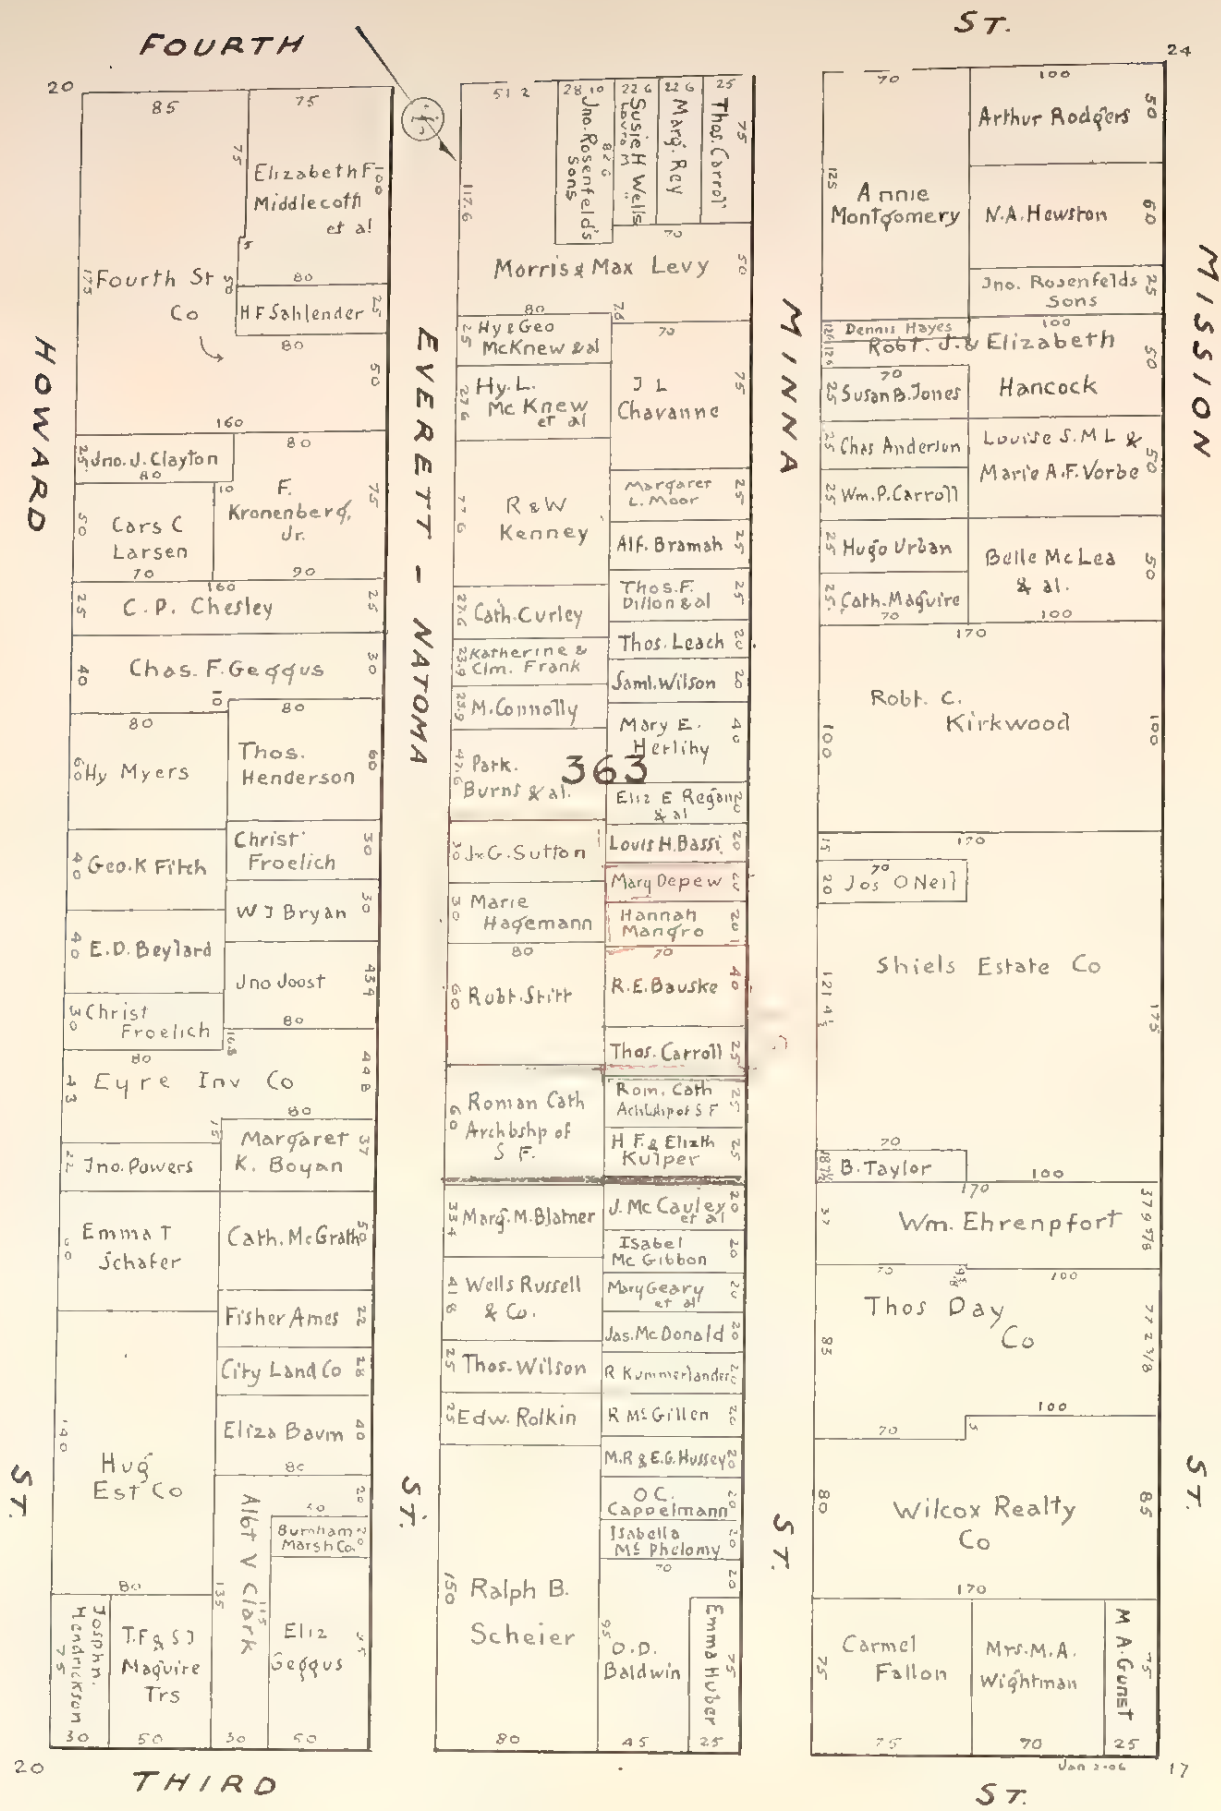 FOURTH
ST.
20
24
HOWARD
ST.
EVERETT - NATOMA
ST.
MINNA
ST.
MISSION
ST.
85
75
75
Elizabeth F
Middlecoth
et al
100
5
175
Fourth St
Co
50
80
H F Sahlender
25
80
50
160
25
Jno. J. Clayton
80
80
10
F.
Kronenberg,
Jr.
75
50
Cars C
Larsen
70
160
90
25
C. P. Chesley
25
40
Chas. F. Geggus
30
10
80
80
60
Hy Myers
Thos.
Henderson
60
40
Geo. K Fitch
Christ
Froelich
30
W J Bryan
30
40
E. D. Beylard
Jno Joost
43 4
30
Christ
Froelich
80
16 8
80
43
Eyre Inv Co
44 8
80
15
22
Jno. Powers
Margaret
K. Boyan
37
Emma T
Schafer
Cath. McGrath
50
Fisher Ames
22
City Land Co
28
Eliza Baum
40
80
140
Hug
Est Co
80
Albt V Clark
135
115
20
Burnham
Marsh Co.
20
Josphn.
Hendrickson
75
T. F & S J
Maguire
Trs
Eliz
Geggus
30
50
30
50
51 2
28 10
22 6
22 6
25
Jno. Rosenfeld's
Sons
82 6
Susie H Wells
Laura M
Marg. Rey
Thos. Carroll
75
117.6
70
Morris & Max Levy
50
80
25
Hy & Geo
McKnew & al
70
27 6
Hy. L.
McKnew
et al
J L
Chavanne
75
77 6
R & W
Kenney
Margaret
L. Moor
25
Alf. Bramah
25
27.6
Cath. Curley
Thos. F.
Dillon & al
25
23.9
Katherine &
Clm. Frank
Thos. Leach
20
Saml. Wilson
20
23.9
M. Connolly
Mary E.
Herlihy
40
363
47.6
Park.
Burns & al.
Eliz E Regan
& al
20
30
J & G. Sutton
Louis H. Bassi
20
Mary Depew
20
30
Marie
Hagemann
Hannah
Mangro
20
80
70
60
Robt. Stitt
R. E. Bauske
40
Thos. Carroll
25
60
Roman Cath
Archbshp of
S F.
Rom. Cath
Archbshp of S F
25
H F. & Elizth
Kulper
25
33 4
Marg. M. Blatner
J. McCauley
et al
20
Isabel
McGibbon
20
41 8
Wells Russell
& Co.
Mary Geary
et al
20
Jas. McDonald
20
25
Thos. Wilson
R Kummerlander
20
25
Edw. Rolkin
R McGillen
20
M. R & E. G. Hussey
20
O C.
Cappelmann
20
Isabella
McPhelomy
20
70
20
150
Ralph B.
Scheier
95
O. D.
Baldwin
Emma Huber
75
80
45
25
70
100
Arthur Rodgers
50
125
Annie
Montgomery
N. A. Hewston
60
Jno. Rosenfelds
Sons
25
Dennis Hayes
100
12 6
12 6
Robt. J. & Elizabeth
Hancock
50
70
25
Susan B. Jones
25
Chas Anderson
Louise S. M L &
Marie A. F. Vorbe
50
25
Wm. P. Carroll
25
Hugo Urban
Belle McLea
& al.
50
25
Cath. Maguire
70
100
170
Robt. C.
Kirkwood
100
100
15
170
70
20
Jos O Neil
Shiels Estate Co
175
70
B. Taylor
100
170
37
Wm. Ehrenpfort
37 9 5/8
70
100
Thos Day
Co
85
77 2 3/8
100
5
70
80
Wilcox Realty
Co
85
170
75
Carmel
Fallon
Mrs. M. A.
Wightman
M A. Gunst
75
75
70
25
Jan 2-06
20
17
THIRD
ST.